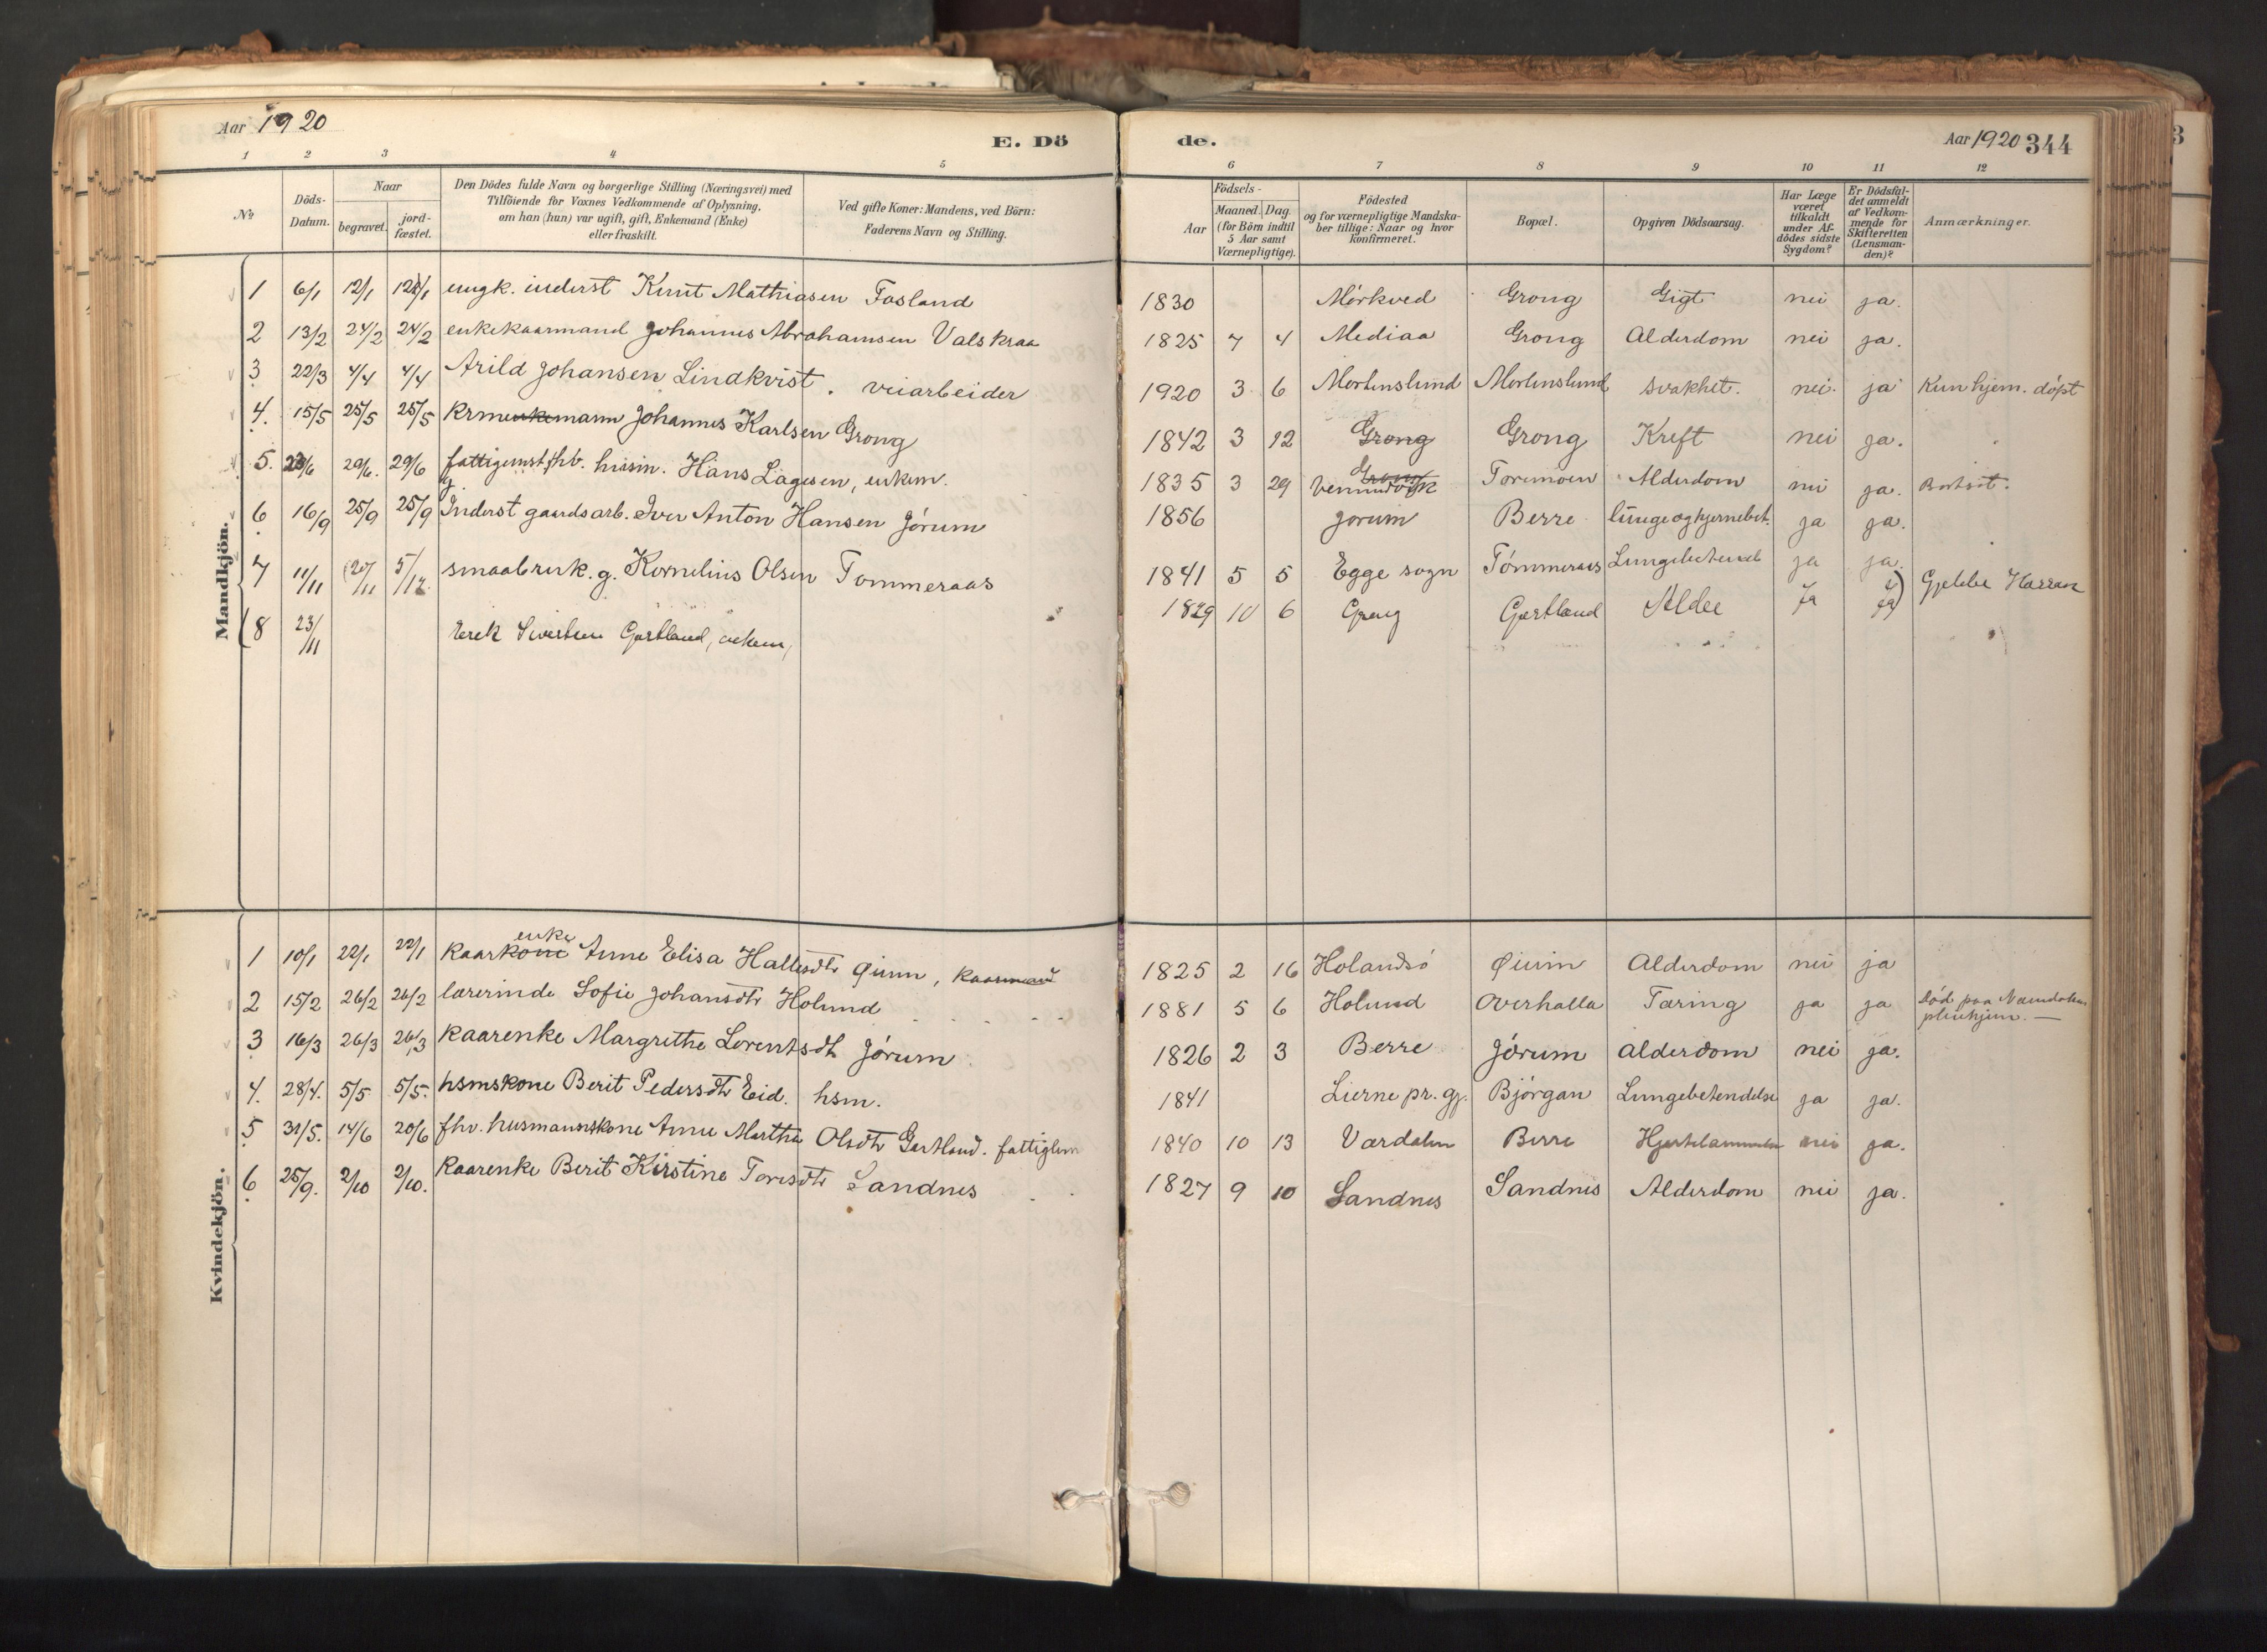 Aar 1920
E. Dö
1 2 3 4 5
No
Döds-
Datum.
Naar
begravet.
jord-
fæstet.
Den Dödes fulde Navn og borgerlige Stilling (Næringsvei) med
Tilföiende for Voxnes Vedkommende af Oplysning,
om han (hun) var ugift, gift, Enkemand (Enke)
eller fraskilt.
Ved gifte Koner: Mandens, ved Börn:
Faderens Navn og Stilling.
Mandkjön.
1 6/1 12/1 12/1 ungk. inderst Knut Mathiasen Fosland
2 13/2 24/2 24/2 enkekaarmand Johannes Abrahamsen Valskraa
3 22/3 4/4 4/4 Arild Johansen Lindkvist. veiarbeider
4. 15/5 25/5 25/5 krmenkemann Johannes Karlsen Grong
5. 23/6 29/6. 29/6 fattigunst. fhv. husm. Hans Lagesen, enkem.
6 16/9 25/9 25/9 Inderst gaardsarb. Iver Anton Hansen Jørum
7 11/11 20/11 5/12 smaabruk. g. Kornelius Olsen Tommeraas
8 23/11 Erek Sivertsen Gartland, enkem,
Kvindekjön.
enke
1 10/1 22/1 22/1 kaarkone Anne Elisa Hallesdtr Øium, kaarmand
2 15/2 26/2 26/2 lærerinde Sofie Johansdtr Holund
3 16/3 26/3 26/3 kaarenke Margrethe Lorentsdtr Jørum
4. 28/4. 5/5 5/5. hsmskone Berit Pedersdtr Eid. hsm.
5 31/5. 14/6 20/6 fhv. husmannskone Anne Martha Olsdtr Gartland. fattiglem
6 25/9. 2/10 2/10. kaarenke Berit Kirstine Toresdtr Sandnes
de.
Aar 1920 344
6 7 8 9 10 11 12
Födsels-
Aar
Maaned. Dag.
(for Börn indtil
5 Aar samt
Værnepligtige).
Födested
og for værnepligtige Mandska-
ber tillige: Naar og hvor
konfirmeret.
Bopæl.
Opgiven Dödsaarsag.
Har Læge
været
tilkaldt
under Af-
dödes sidste
Sygdom?
Er Dödsfal-
det anmeldt
af Vedkom-
mende for
Skifteretten
(Lensman-
den)?
Anmærkninger.
1830 Mørkved Grong Gigt nei ja.
1825 7 4 Mediaa Grong Alderdom nei ja.
1920 3 6 Mortenslund Mortenslund svakhet. nei. ja Kun hjem. døpt
1842 3 12 Grong Grong Kreft nei ja.
1835 3 29 Grong Vemundvik Toremoen Alderdom nei ja. Bortsat.
1856 Jørum Berre lunge og hjernebet. ja ja.
1841 5 5 Egge sogn Tømmeraas Lungebetend ja ja.
1829 10 6 Grong Gartland Alder ja ja Gjelder Harran
1825 2 16 Holandsø Øium Alderdom nei ja
1881 5 6 Holund Overhalla Tæring ja ja Død paa Namdalens
pleiehjem. —
1826 2 3 Berre Jørum Alderdom nei ja.
1841 Lierne pr. gj. Bjørgan Lungebetendelse ja ja.
1840 10 13 Værdalen Berre Hjertelammelse nei ja.
1827 9 10 Sandnes Sandnes Alderdom nei ja.